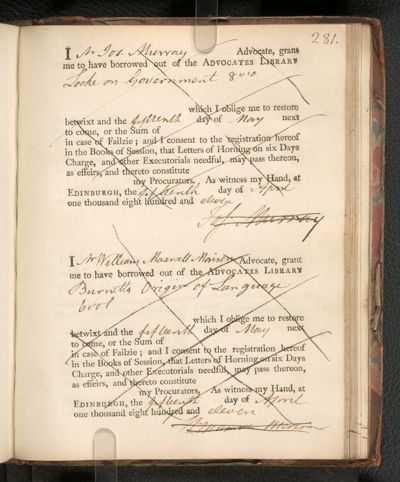 281.
I Mr Jos. Murray Advocate, grant
me to have borrowed out of the ADVOCATES LIBRARY
Locke on Government 8vo
which I oblige me to restore
betwixt and the fifteenth day of May next
to come, or the Sum of
in case of Failzie; and I consent to the registration hereof
in the Books of Session, that Letters of Horning on six Days
Charge, and other Executorials needful, may pass thereon,
as effeirs, and thereto constitute
my Procurators. As witness my Hand, at
EDINBURGH, the fifteenth day of April
one thousand eight hundred and eleven
Murray
I Mr William Maxwell Morison Advocate, grant
me to have borrowed out of the ADVOCATES LIBRARY
Burnett's Origin of Language
6vol
which I oblige me to restore
betwixt and the fifteenth day of May next
to come, or the Sum of
in case of Failzie; and I consent to the registration hereof
in the Books of Session, that Letters of Horning on six Days
Charge, and other Executorials needful, may pass thereon,
as effeirs, and thereto constitute
my Procurators. As witness my Hand, at
EDINBURGH, the fifteenth day of April
one thousand eight hundred and eleven